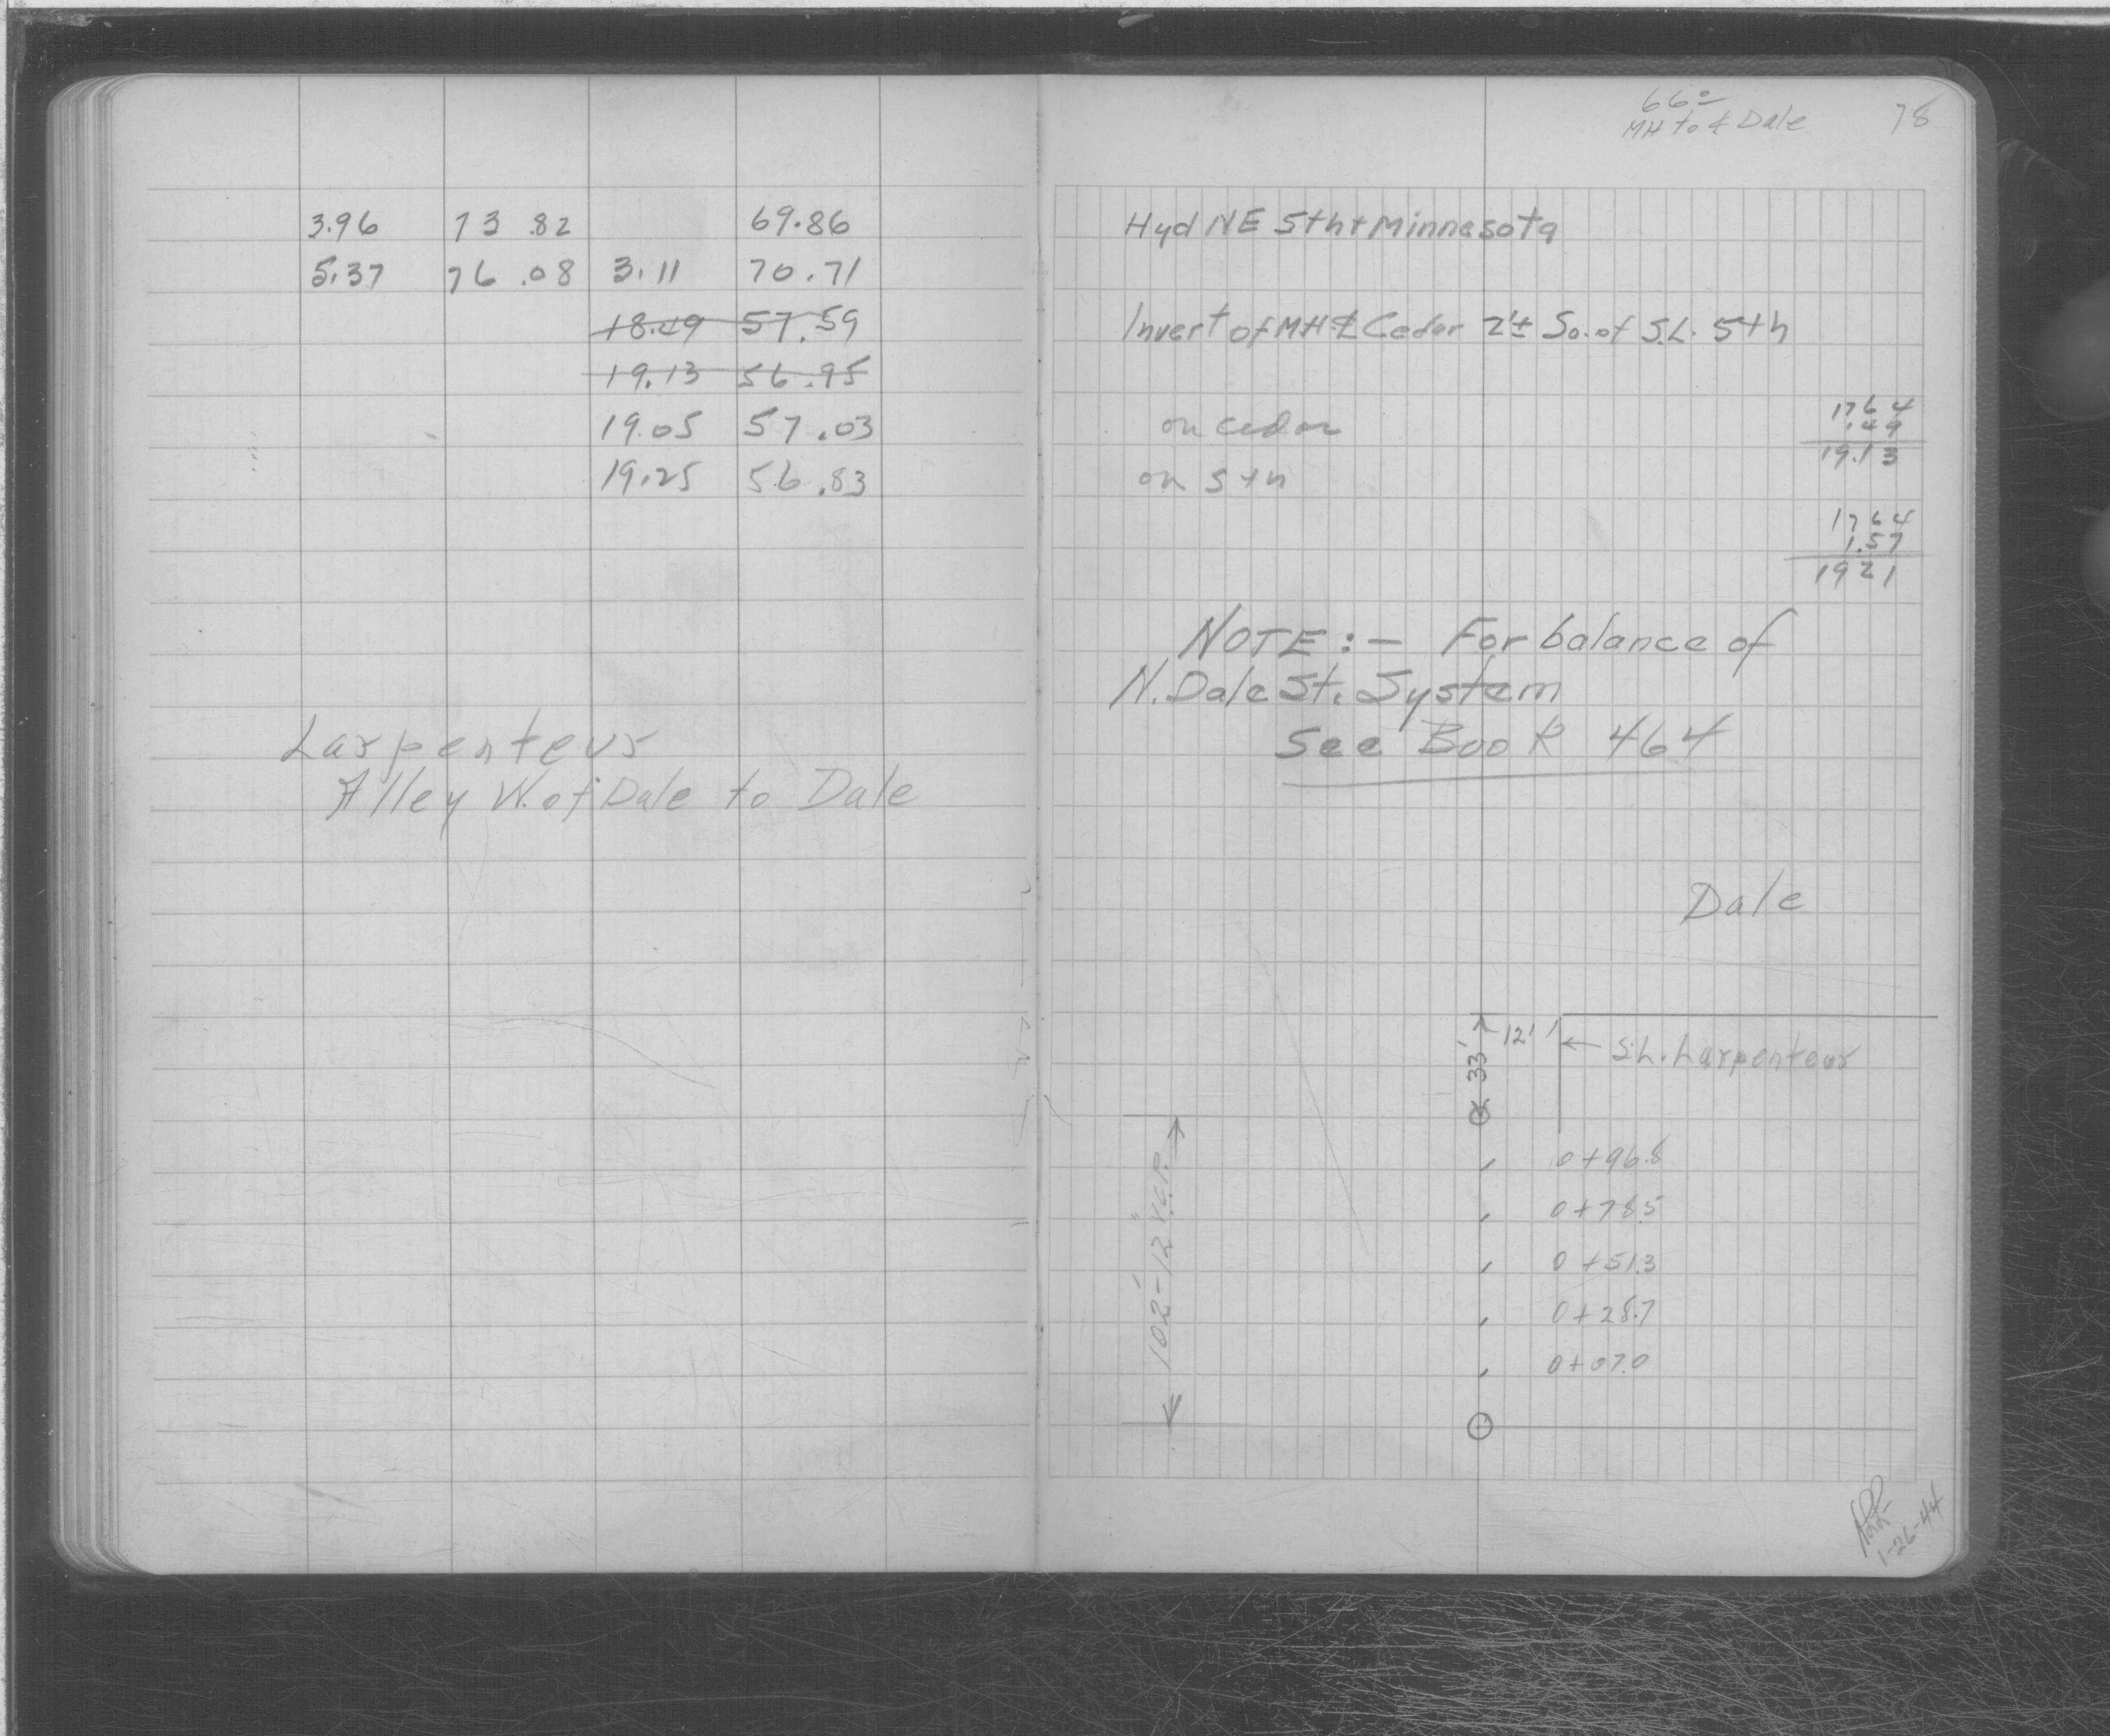 3.96 73.82 69.86
5.37 76.08 3.11 70.71
18.49 57.59
19.13 56.95
19.05 57.03
19.25 56.83
Larpenteur
Alley W. of Dale to Dale
66º
MH to ℄ Dale
78
Hyd NE 5th + Minnesota
Invert of MH ℄ Cedar 2'± So. of S.L. 5th
on cedar
on 5th
1764
1.49
19.13
1764
1.57
1921
NOTE:- For balance of
N. Dale St. System
See Book 464
Dale
33'
12'
← S.L. Larpenteur
0+96.8
0+78.5
0+51.3
0+28.7
0+07.0
102'-12" V.C.P.
1-26-44